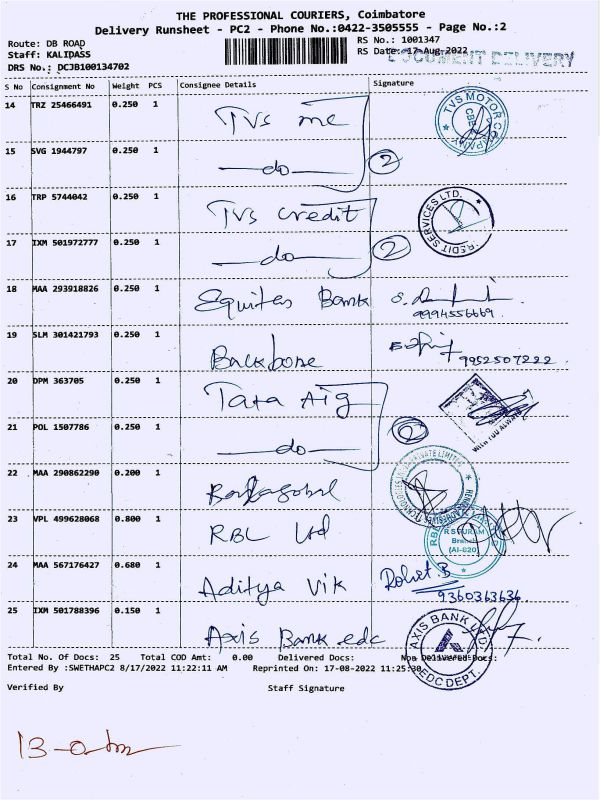 THE PROFESSIONAL COURIERS, Coimbatore
Delivery Runsheet - PC2 - Phone No.:0422-3505555 - Page No.:2
Route: DB ROAD
RS No.: 1001347
Staff: KALIDASS
RS Date: 17-Aug-2022
DOCUMENT DELIVERY
DRS No.: DCJB100134702
S No Consignment No Weight PCS Consignee Details Signature
14 TRZ 25466491 0.250 1 TVS mc TVS MOTOR COMPANY CBE
15 SVG 1944797 0.250 1 —do— 2
16 TRP 5744042 0.250 1 TVS credit CREDIT SERVICES LTD.
17 IXM 501972777 0.250 1 —do— 2
18 MAA 293918826 0.250 1 Equitas Bank 9994556669
19 SLM 301421793 0.250 1 Backbone 9952507222
20 DPM 363705 0.250 1 Tata Aig WITH YOU ALWAYS
21 POL 1507786 0.250 1 —do— 2
22 MAA 290862290 0.200 1 TECHNOLOGIES PRIVATE LIMITED
23 VPL 499628068 0.800 1 RBL Ltd R S PURAM Branch (AI-820
24 MAA 567176427 0.680 1 Aditya Vik Rohit B 9360363636
25 IXM 501788396 0.150 1 Axis Bank edc AXIS BANK LTD. EDC DEPT.
Total No. Of Docs: 25 Total COD Amt: 0.00 Delivered Docs: Non Delivered Docs:
Entered By :SWETHAPC2 8/17/2022 11:22:11 AM Reprinted On: 17-08-2022 11:25:30
Verified By Staff Signature